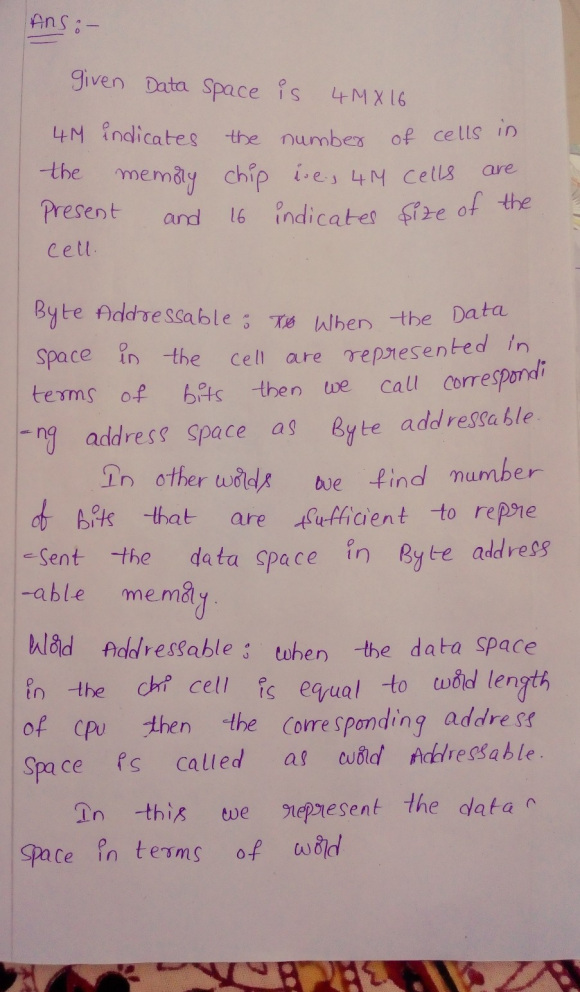 Ans :-
Given Data Space is 4M X 16
4M indicates the number of cells in
the memory chip i.e., 4M cells are
Present and 16 indicates size of the
cell.
Byte Addressable : When the Data
Space in the cell are represented in
terms of bits then we call correspondi
-ng address space as Byte addressable.
In other words we find number
of bits that are sufficient to repre
-sent the data space in Byte address
-able memory.
Word Addressable : when the data space
in the cell is equal to word length
of CPU then the corresponding address
Space is called as word Addressable.
In this we represent the data
space in terms of word